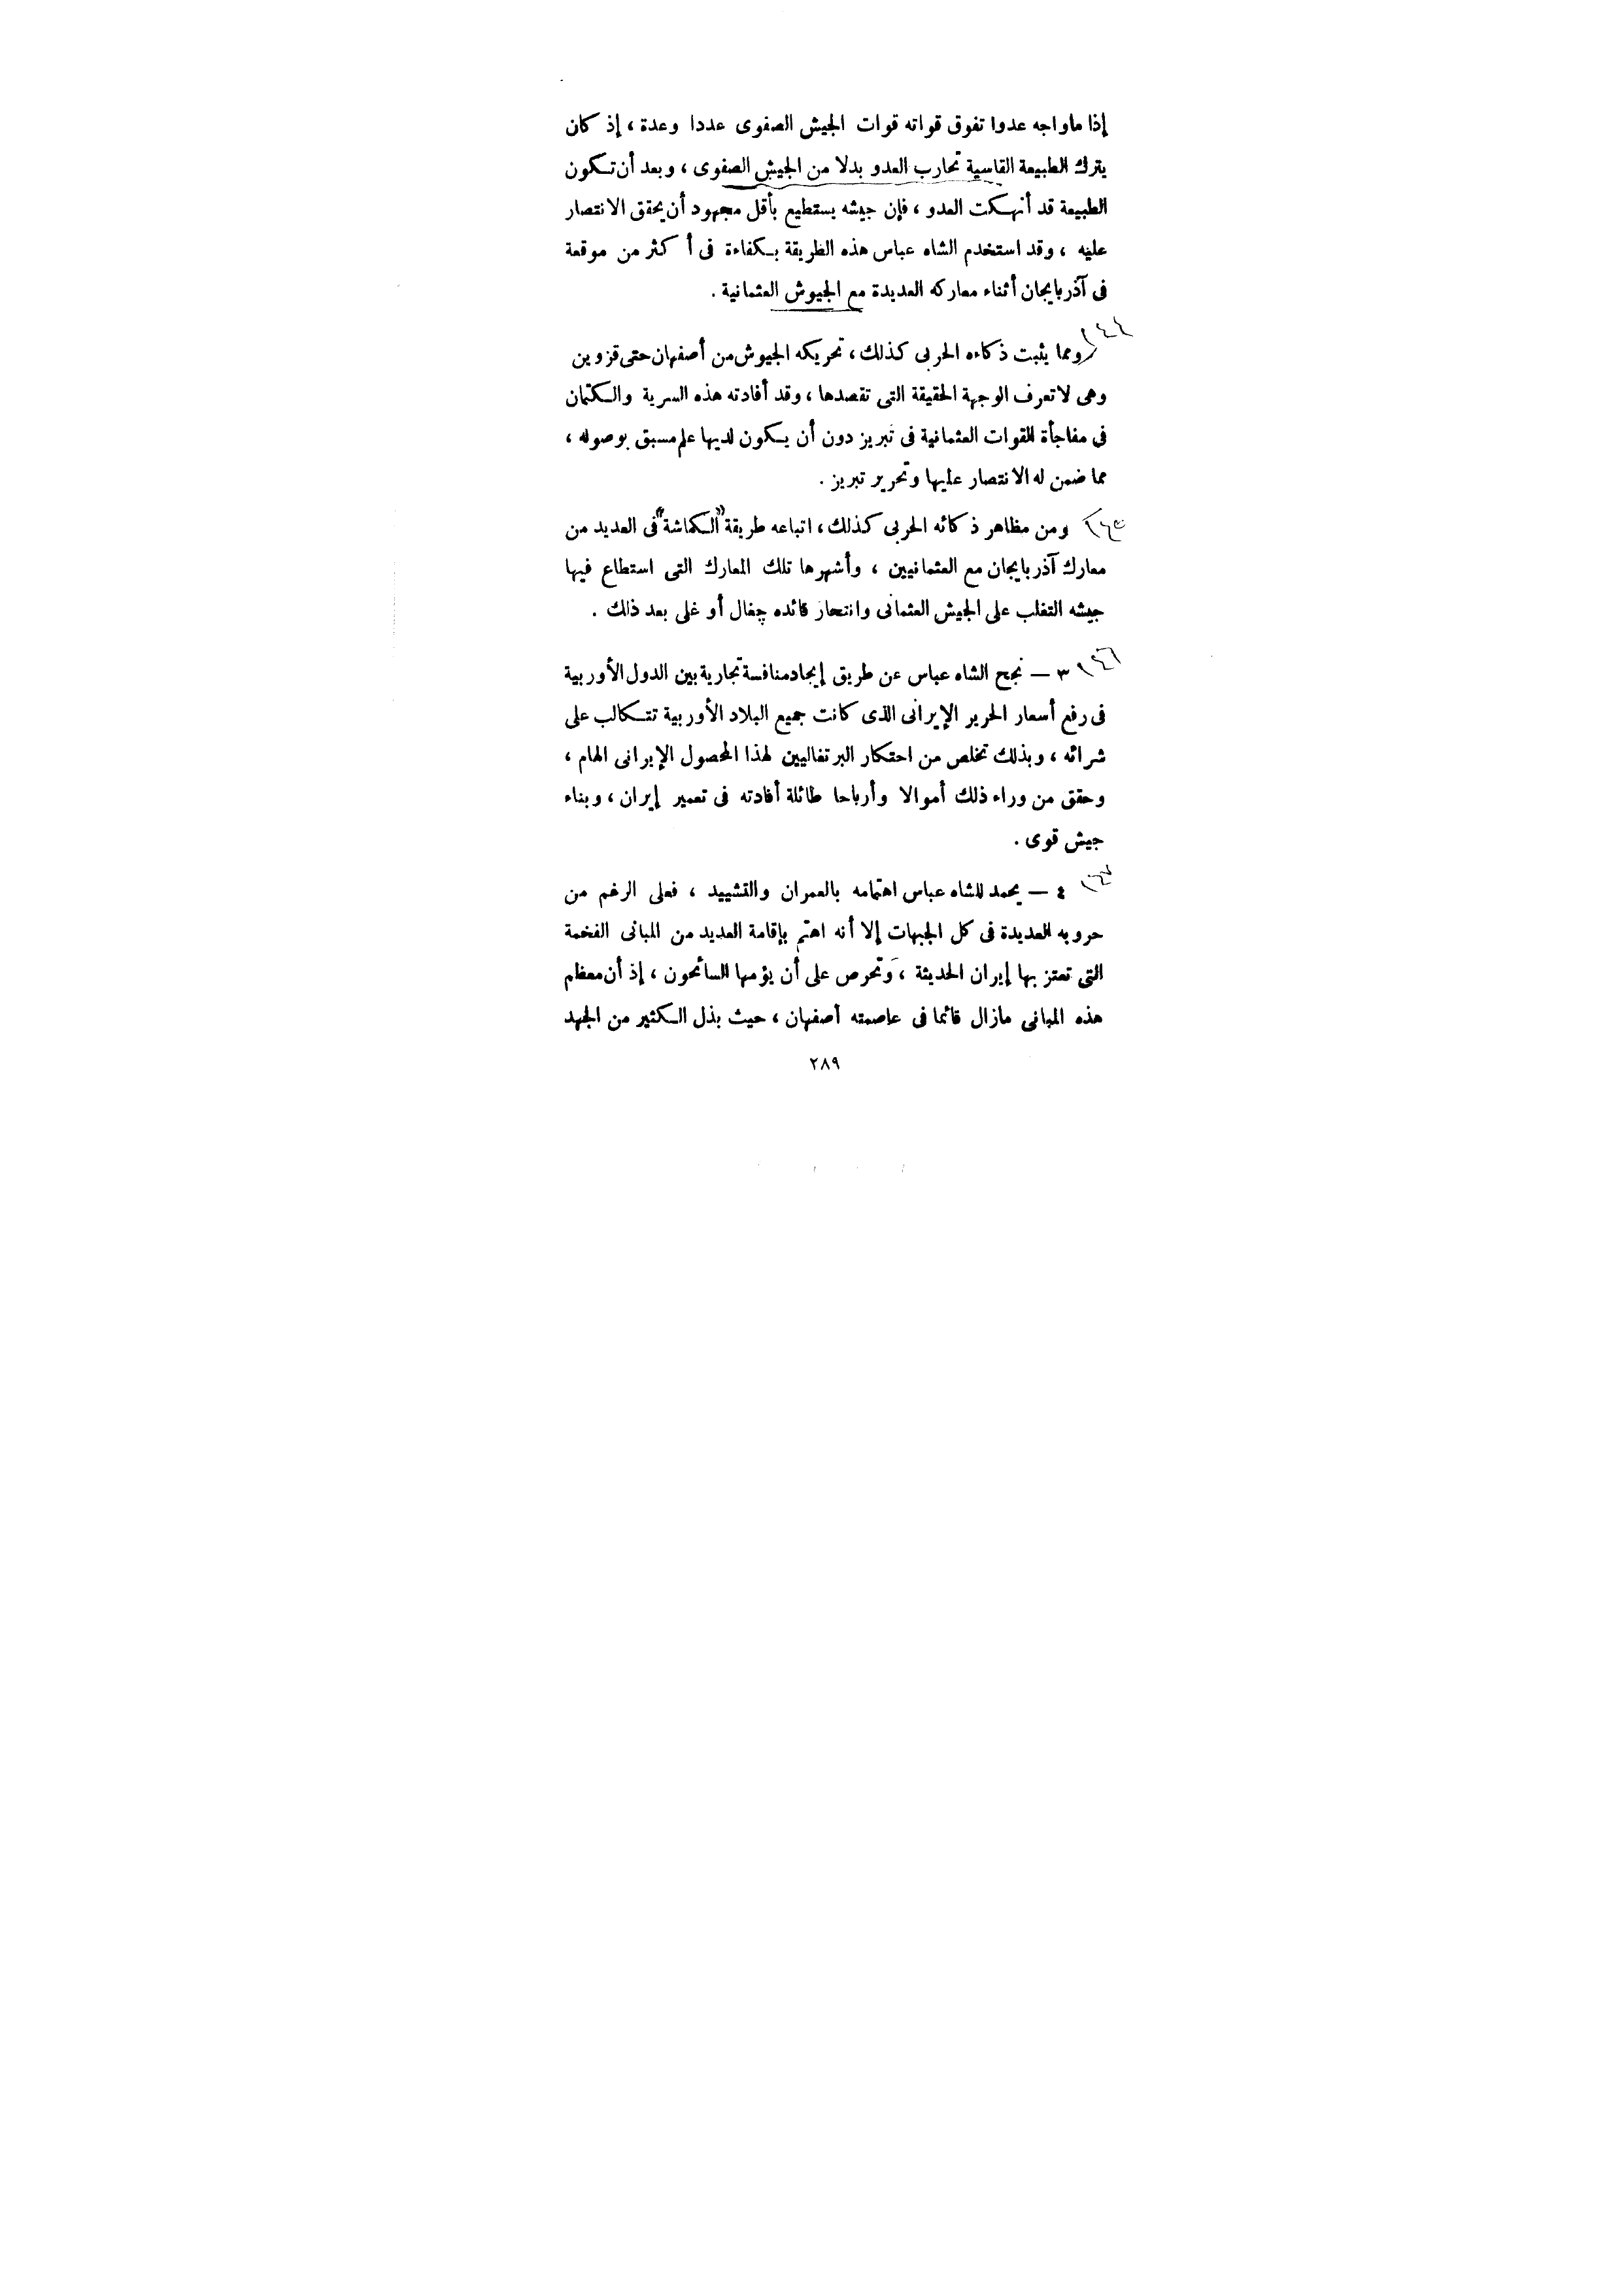 إذا ماواجه عدوا تفوق قواته قوات الجيش الصفوى عددا وعدة ، إذ كان
يترك الطبيعة القاسية تحارب العدو بدلا من الجيش الصفوى ، وبعد أن تكون
الطبيعة قد أنهكت العدو ، فإن جيشه يستطيع بأقل مجهود أن يحقق الانتصار
عليه ، وقد استخدم الشاه عباس هذه الطريقة بكفاءة فى أكثر من موقعة
فى آذربايجان أثناء معاركه العديدة مع الجيوش العثمانية .
ومما يثبت ذكاءه الحربى كذلك ، تحريكه الجيوش من أصفهان حتى قزوين
وهى لاتعرف الوجهة الحقيقة التى تقصدها ، وقد أفادته هذه السرية والكتمان
فى مفاجأة القوات العثمانية فى تبريز دون أن يكون لديها علم مسبق بوصوله ،
مما ضمن له الانتصار عليها وتحرير تبريز .
ومن مظاهر ذكائه الحربى كذلك ، اتباعه طريقة "الكماشة" فى العديد من
معارك آذربايجان مع العثمانيين ، وأشهرها تلك المعارك التى استطاع فيها
جيشه التغلب على الجيش العثمانى وانتحار قائده چغال أوغلى بعد ذلك .
٣ — نجح الشاه عباس عن طريق إيجاد منافسة تجارية بين الدول الأوربية
فى رفع أسعار الحرير الإيرانى الذى كانت جميع البلاد الأوربية تتكالب على
شرائه ، وبذلك تخلص من احتكار البرتغاليين لهذا المحصول الإيرانى الهام ،
وحقق من وراء ذلك أموالا وأرباحا طائلة أفادته فى تعمير إيران ، وبناء
جيش قوى .
٤ — يحمد للشاه عباس اهتمامه بالعمران والتشييد ، فعلى الرغم من
حروبه العديدة فى كل الجبهات إلا أنه اهتم بإقامة العديد من المبانى الفخمة
التى تعتز بها إيران الحديثة ، وتحرص على أن يؤمها السائحون ، إذ أن معظم
هذه المبانى مازال قائما فى عاصمته أصفهان ، حيث بذل الكثير من الجهد
٢٨٩